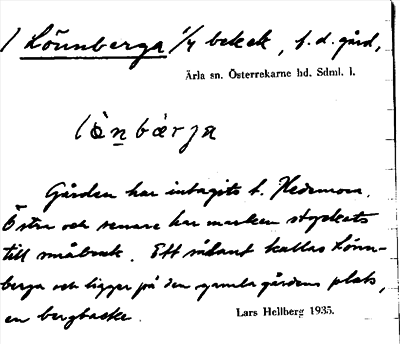 / Lönnberga 1/4 bebek, f.d. gård,
Ärla sn. Österrekarne hd. Sdml. l.
Gården har intagits t. Hedemora,
Östra och senare har marken styckats
till småbruk. Ett sådant kallas Lönn-
berga och ligger på den gamla gårdens plats,
en bergbacke.
Lars Hellberg 1935.